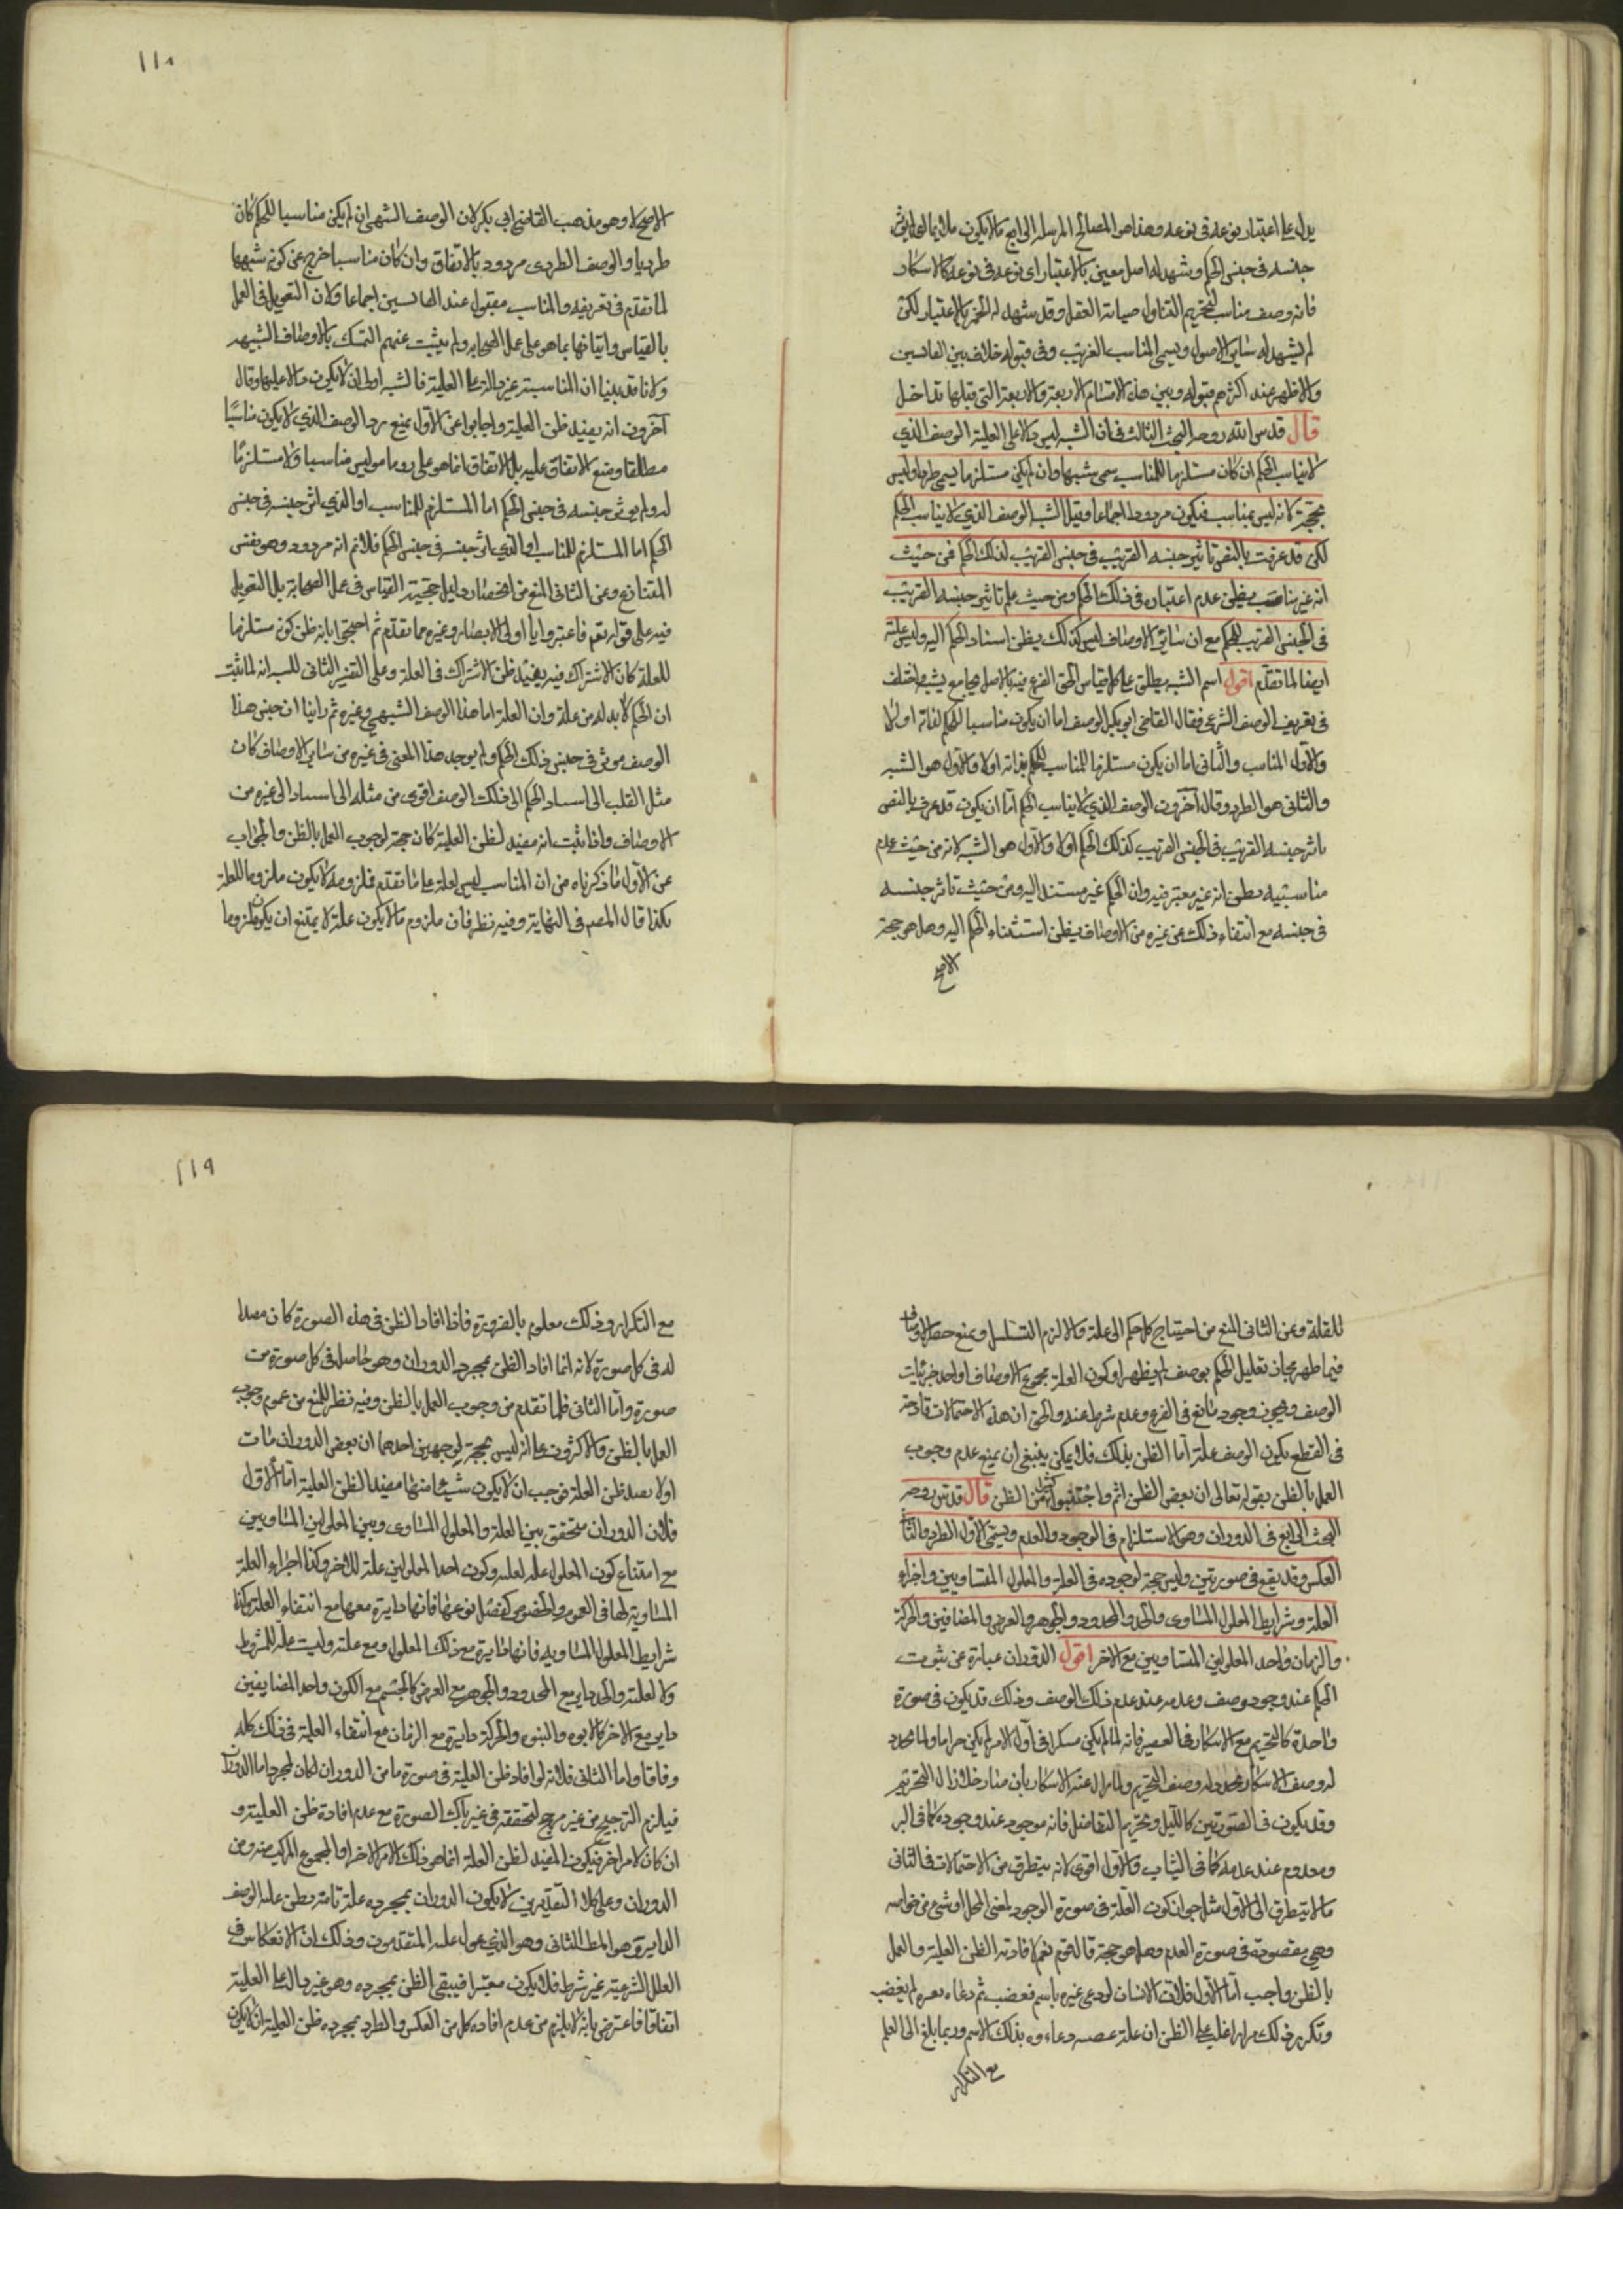 يدل على اعتبار نوعه في نوعه وهذا هو المصالح المرسلة الرابع ما لا يكون ملايما اي لم يؤثر
جنسه في جنس الحكم وشهد له اصل معين بالاعتبار اي نوعه في نوعه كالاسكار
فانه وصف مناسب لتحريم التناول صيانة العقل وقد شهد له الخمر بالاعتبار لكن
لم يشهد له ساير الاصول ويسمى المناسب الغريب وفي قبوله خلاف بين القايسين
والاظهر عند اكثرهم قبوله وبين هذه الاقسام الاربعة والاربعة التي قبلها تداخل
قال قدس الله روحه البحث الثالث في ان الشبه ليس دالا على العلية الوصف الذي
لا يناسب الحكم ان كان مستلزما للمناسب سمي شبها وان لم يكن مستلزما يسمى طردا وليس
بحجة لانه ليس بمناسب فيكون مردودا اجماعا وقيل الشبه الوصف الذي لا يناسب الحكم
لكن قد عرفت بالنص تاثير جنسه القريب في جنس القريب لذلك الحكم فمن حيث
انه غير مناسب يظن عدم اعتباره في ذلك الحكم ومن حيث علم تاثير جنسه القريب
في الجنس القريب للحكم مع ان ساير الاوصاف ليس كذلك يظن اسناد الحكم اليه وليس علة
ايضا لما تقدم اقول اسم الشبه يطلق على كل قياس الحق الفرع فيه بالاصل بجامع يشبهه اختلف
في تعريف الوصف الشرعي فقال القاضي ابو بكر الوصف اما ان يكون مناسبا للحكم لذاته اولا
والاول المناسب والثاني اما ان يكون مستلزما للمناسب للحكم بذاته اولا والاول هو الشبه
والثاني هو الطرد وقال آخرون الوصف الذي لا يناسب الحكم اما ان يكون قد عرف بالنص
تاثر جنسه القريب في الجنس القريب كذلك الحكم اولا والاول هو الشبه لانه من حيث عدم
مناسبته يظن انه غير معتبر فيه وان الحكم غير مستند اليه ومن حيث تاثر جنسه
في جنسه مع انتفاء ذلك عن غيره من الاوصاف يظن استناد الحكم اليه وهل هو حجة
الاصح
١١٨
الاصح لا وهو مذهب القاضي ابي بكر لان الوصف الشبهي ان لم يكن مناسبا للحكم كان
طرديا والوصف الطردي مردود بالاتفاق وان كان مناسبا خرج عن كونه شبهيا
لما تقدم في تعريفه والمناسب مقبول عند القايسين اجماعا ولان التعويل في العمل
بالقياس واثباتها بما هو على عمل الصحابة ولم يثبت عنهم التمسك بالاوصاف الشبيهة
ولانا قد بينا ان المناسبة غير دالة على العلية فالشبه اولى ان لا يكون دالا عليها وقال
آخرون انه يفيد ظن العلية واجابوا عن الاول بمنع رد الوصف الذي لا يكون مناسبا
مطلقا ومنع الاتفاق عليه بل الاتفاق انما هو على رد ما ليس مناسبا ولا مستلزما
له ولم يؤثر جنسه في جنس الحكم اما المستلزم للمناسب او الذي اثر جنسه في جنس
الحكم اما المستلزم للمناسب او الذي اثر جنسه في جنس الحكم فلا نم انه مردود وهو نفس
المتنازع وعن الثاني المنع من انحصار دليل حجية القياس في عمل الصحابة بل التعويل
فيه على قوله تع فاعتبروا يا اولي الابصار وغيره مما تقدم ثم احتجوا بانه ظن كونه مستلزما
للعلة كان الاشتراك فيه يفيد ظن الاشتراك في العلة وعلى التفسير الثاني للشبه انه لما ثبت
ان الحكم لا بد له من علة وان العلة اما هذا الوصف الشبهي وغيره ثم راينا ان جنس هذا
الوصف موثر في جنس ذلك الحكم ولم يوجد هذا المعنى في غيره من ساير الاوصاف كان
ميل القلب الى اسناد الحكم الى ذلك الوصف اقوى من ميله الى اسناده الى غيره من
الاوصاف واذا ثبت انه مفيد لظن العلية كان حجة لوجوب العمل بالظن والجواب
عن الاول ما ذكرناه من ان المناسب ليس لعلة على ما تقدم فملزومه لا يكون ملزوما للعلة
كذا قال المصنف في النهاية وفيه نظر فان ملزوم ما لا يكون علة لا يمتنع ان يكون ملزوما
للعلة وعن الثاني المنع من احتياج كل حكم الى علة والا لزم التسلسل ويمنع حصر الاوصاف
فيما ظهر لجواز تعليل الحكم بوصف لم يظهر او كون العلة مجموع الاوصاف او احد جزئيات
الوصف ويجوز وجود مانع في الفرع وعدم شرط عنده والحق ان هذه الاحتمالات قادحة
في القطع بكون الوصف علة اما الظن بذلك فلا يمكن ينبغي ان يمنع عدم وجوب
العمل بالظن بقوله تعالى ان بعض الظن اثم واجتنبوا كثيرا من الظن قال قدس روحه
البحث الرابع في الدوران وهو الاستلزام في الوجود والعدم ويسمى الاول الطرد والثاني
العكس وقد يقع في صورتين وليس حجة لوجوده في العلة والمعلول المتساويين واجزاء
العلة وشرايط المعلول المساوي والحد والمحدود والجوهر والعرض والمضافين والحركة
والزمان واحد المعلولين المتساويين مع الاخر اقول الدوران عبارة عن ثبوت
الحكم عند وجود وصف وعدمه عند عدم ذلك الوصف وذلك قد يكون في صورة
واحدة كالتحريم مع الاسكار في العصير فانه لما لم يكن مسكرا في اول الامر لم يكن حراما ولما تجدد
له وصف الاسكار تجدد له وصف التحريم ولما زال عنه الاسكار بان صار خلا زال التحريم
وقد يكون في الصورتين كالكيل وتحريم التفاضل فانه موجود عند وجوده كما في البر
ومعدوم عند عدمه كما في الثياب والاول اقوى لانه يتطرق من الاحتمالات في الثاني
ما لا يتطرق الى الاول مثل جواز كون العلة في صورة الوجود نفس المحل او شيء من خواصه
وهي مفقودة في صورة العدم وهل هو حجة قال قوم نعم لافادته الظن العلية والعمل
بالظن واجب اما الاول فلان الانسان لو دعي غيره باسم فغضب ثم دعاه بغيره لم يغضب
وتكرر ذلك مرارا غلب على الظن ان علة غضبه دعاءوه بذلك الاسم وربما بلغ الى العلم
مع التكرار
١١٩
مع التكرار وذلك معلوم بالضرورة فاذا افاد الظن في هذه الصورة كان مفيدا
له في كل صورة لانه انما افاد الظن بمجرد الدوران وهو حاصل في كل صورة من
صوره واما الثاني فلما تقدم من وجوب العمل بالظن وفيه نظر للمنع من عموم وجوب
العمل بالظن والاكثرون على انه ليس بحجة لوجهين احدهما ان بعض الدورانات
اولا يفيد ظن العلة فوجب ان لا يكون شيء منها مفيدا لظن العلية اما الاول
فلان الدوران متحقق بين العلة والمعلول المساوي وبين المعلولين المتساويين
مع امتناع كون المعلول علة لعلته وكون احد المعلولين علة للاخر وكذا اجزاء العلة
المساوية لها في العموم والخصوص كفصل نوعها فانها دايرة معها مع انتفاء العلة وكذا
شرايط المعلول المساوية فانها دايرة مع ذلك المعلول ومع علته وليست علة للمشروط
ولا لعلته والحد داير مع المحدود والجوهر مع العرض كالجسم مع الكون واحد المضايفين
داير مع الاخر كالابوة والبنوة والحركة دايرة مع الزمان مع انتفاء العلية في ذلك كله
وفاقا واما الثاني فلانه لو افاد ظن العلية في صورة ما من الدوران لكان لمجرد اما الدوران
فيلزم الترجيح من غير مرجح لتحققه في غير تلك الصورة مع عدم افادة ظن العلية و
ان كان لامر اخر فيكون المفيد لظن العلة انما هو ذلك الامر الاخر او المجموع المركب منه ومن
الدوران وعلى كلا التقديرين لا يكون الدوران بمجرده علة تامة بظن علية الوصف
الداير وهو المط الثاني وهو الذي عول عليه المتقدمون وذلك ان الانعكاس في
العلل الشرعية غير شرط فلا يكون معتبرا فيبقى الظن بمجرده وهو غير دال على العلية
اتفاقا فاعترض بانه لا يلزم من عدم افادة كل من العكس والطرد بمجرده ظن العلية ان لا يكون